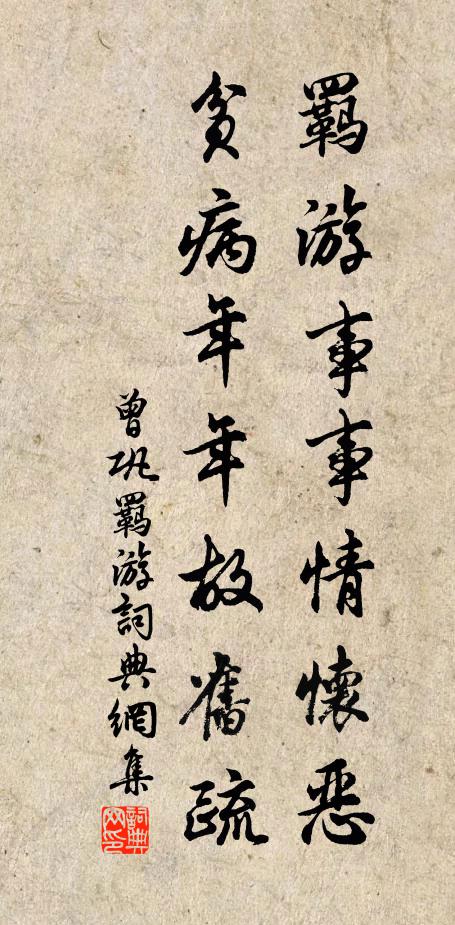 羈游事事情懷惡
貧病年年故舊疏
曾巩羈游詞典網集
詞典
网印